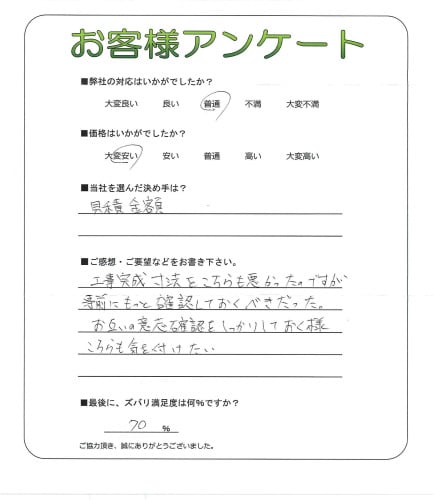 お客様アンケート
■弊社の対応はいかがでしたか?
大変良い 良い 普通 不満 大変不満
■価格はいかがでしたか?
大変安い 安い 普通 高い 大変高い
■当社を選んだ決め手は?
見積金額
■ご感想・ご要望などをお書き下さい。
工事完成寸法をこちらも悪かったのですが
事前にもっと確認しておくべきだった。
お互いの意志確認をしっかりしておく様
こちらも気を付けたい
■最後に、ズバリ満足度は何%ですか?
70 %
ご協力頂き、誠にありがとうございました。